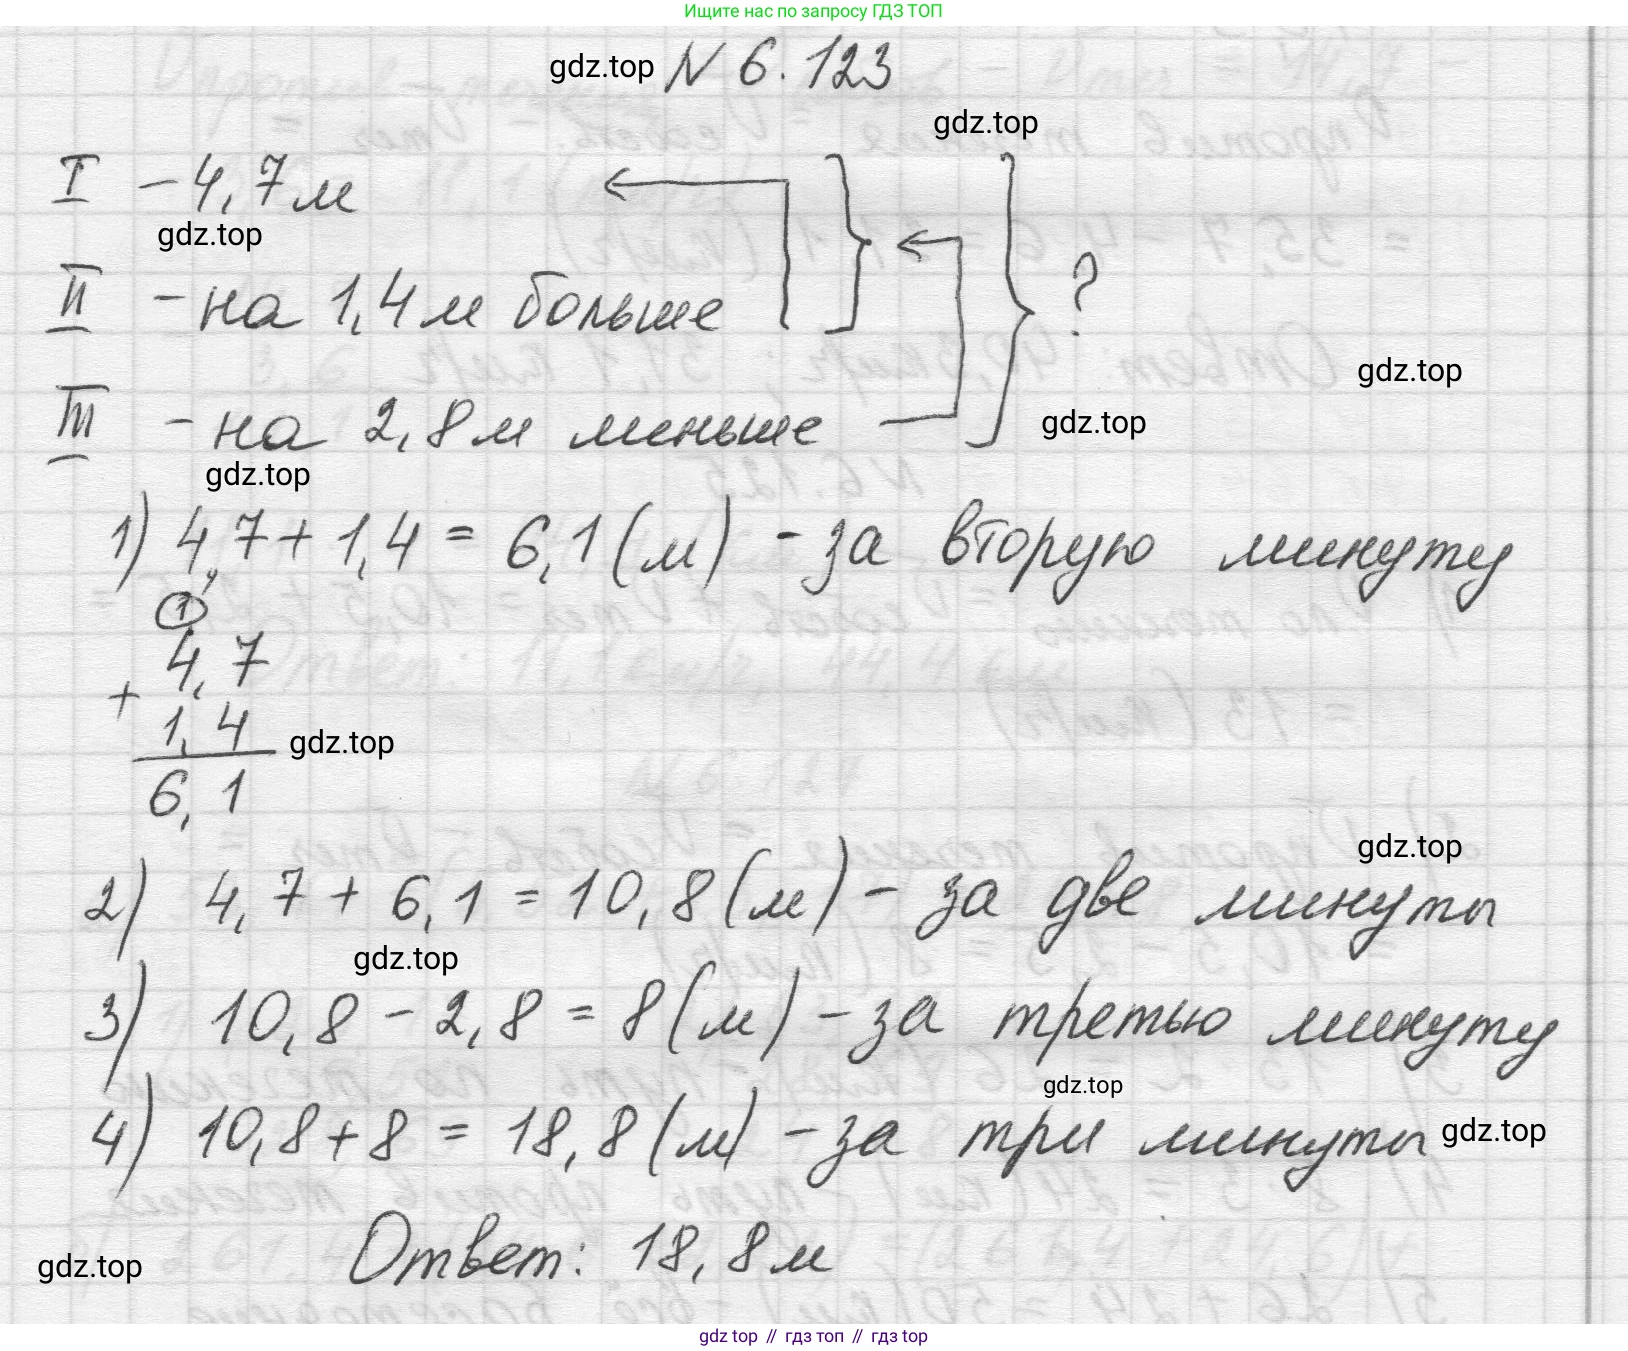 Ищите нас по запросу ГДЗ ТОП
gdz.top N 6.123
gdz.top
I - 4,7 м
gdz.top
II - на 1,4 м больше
?
gdz.top
III - на 2,8 м меньше
gdz.top
gdz.top
1) 4,7 + 1,4 = 6,1 (м) - за вторую минуту
1
4,7
+
1,4
gdz.top
6,1
gdz.top
2) 4,7 + 6,1 = 10,8 (м) - за две минуты
gdz.top
3) 10,8 - 2,8 = 8 (м) - за третью минуту
gdz.top
4) 10,8 + 8 = 18,8 (м) - за три минуты gdz.top
Ответ: 18,8 м
gdz.top
gdz top // гдз топ // гдз top